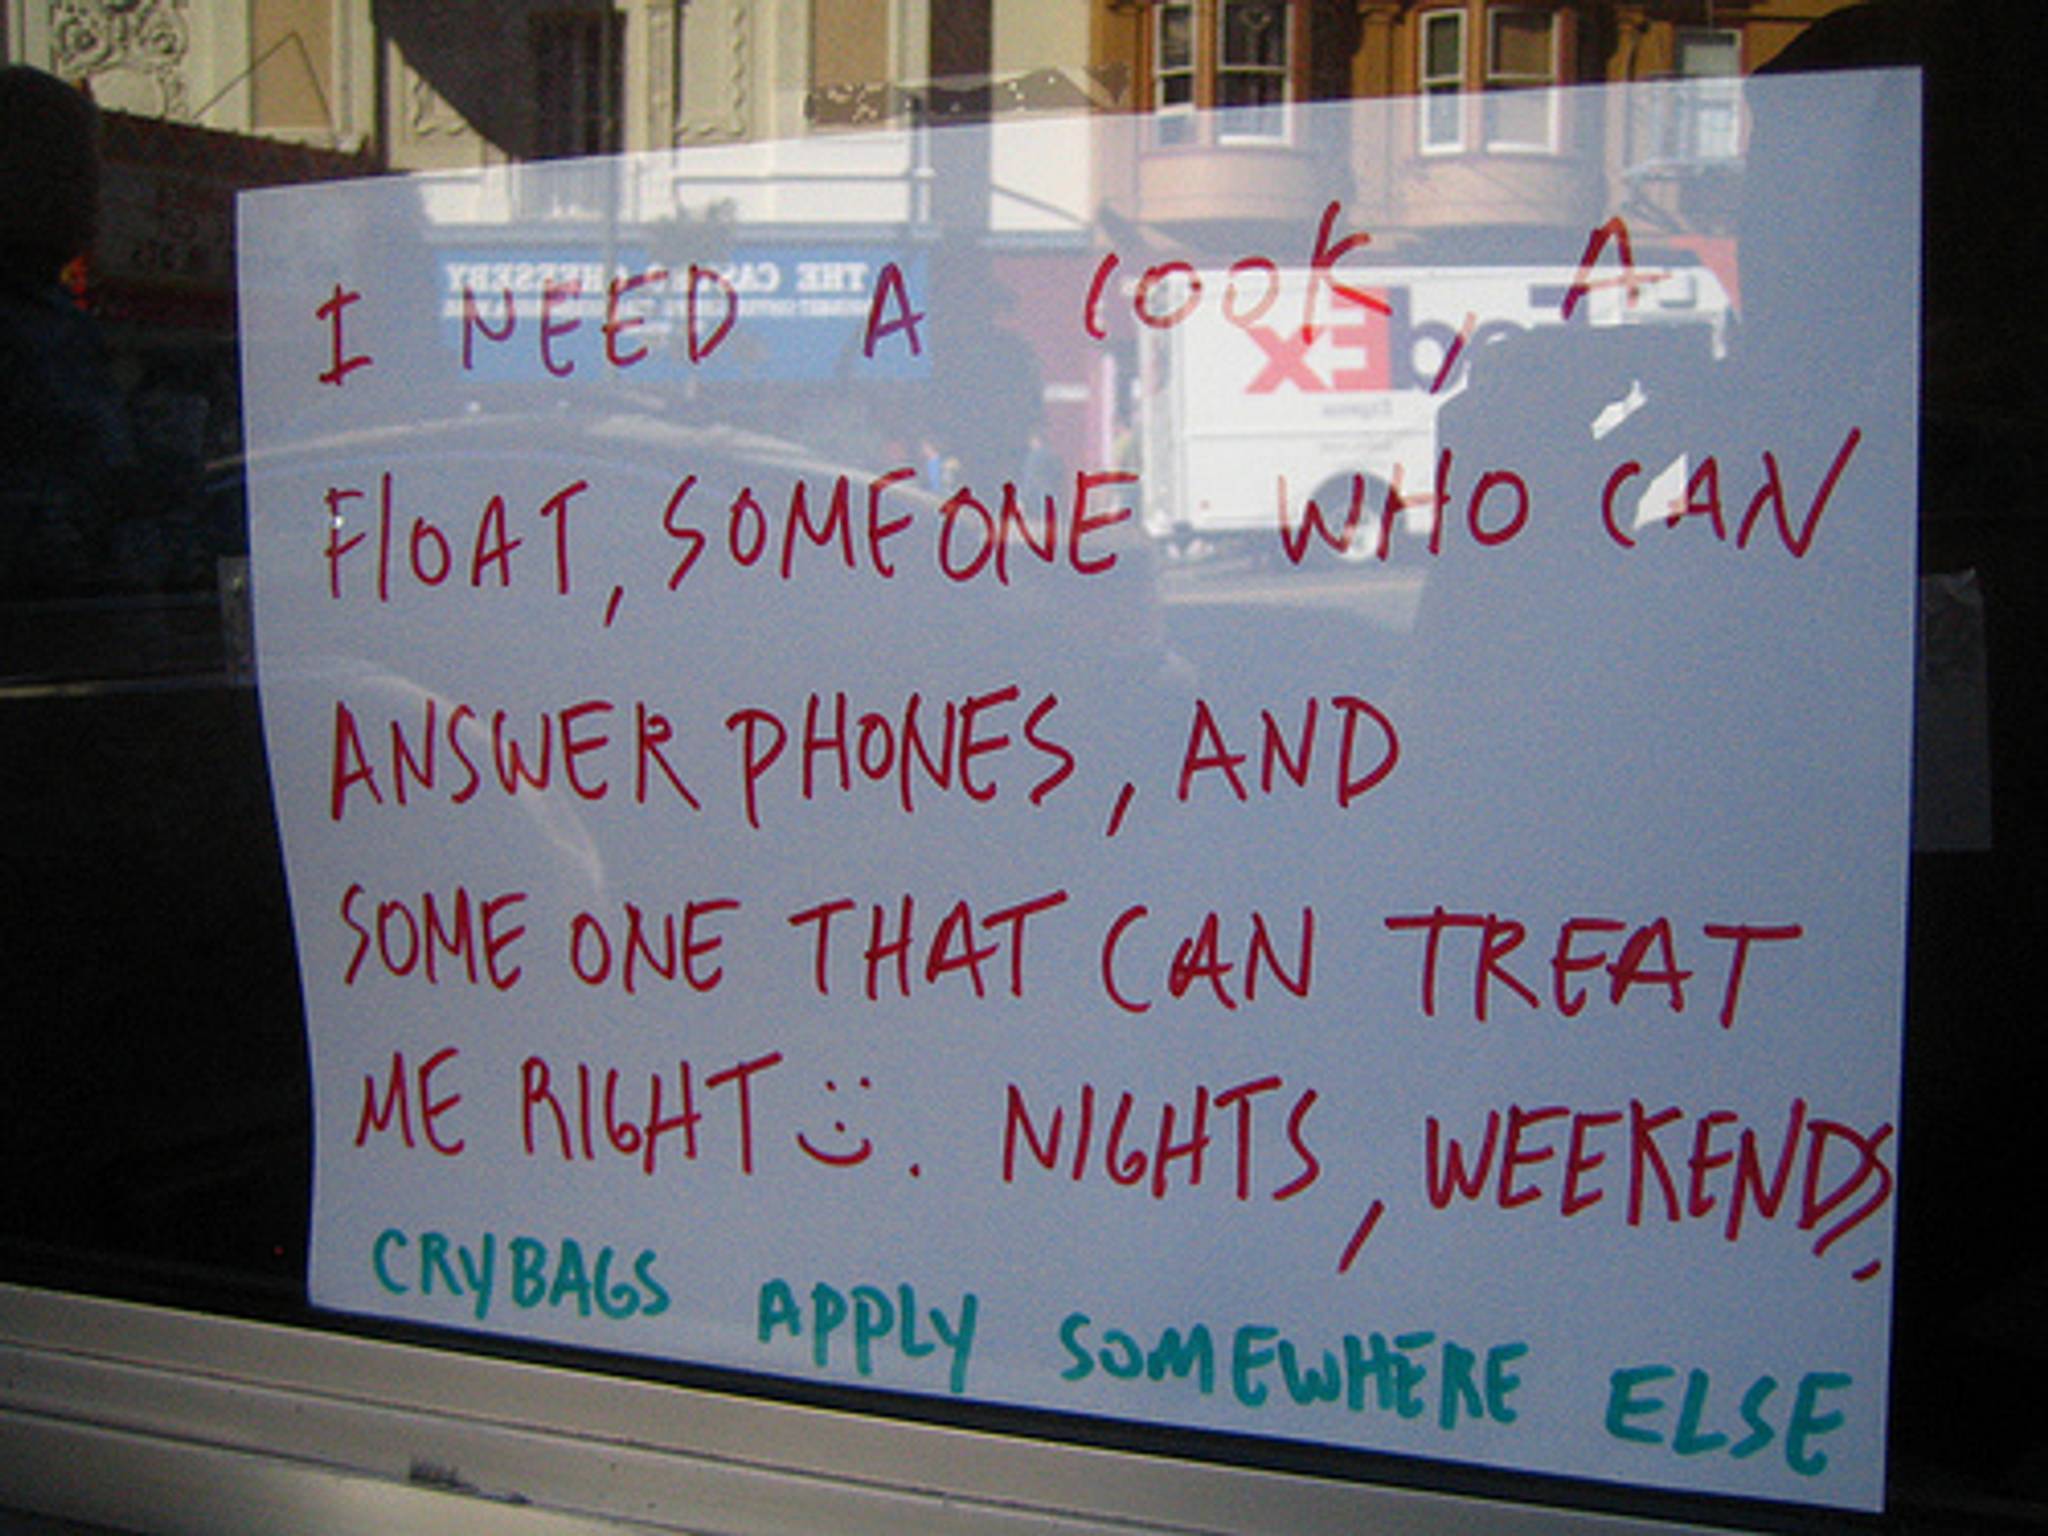 I NEED A COOK, A
FLOAT, SOMEONE WHO CAN
ANSWER PHONES, AND
SOME ONE THAT CAN TREAT
ME RIGHT. NIGHTS, WEEKENDS,
CRYBAGS APPLY SOMEWHERE ELSE
THE CASTRO CHEESERY
Ex